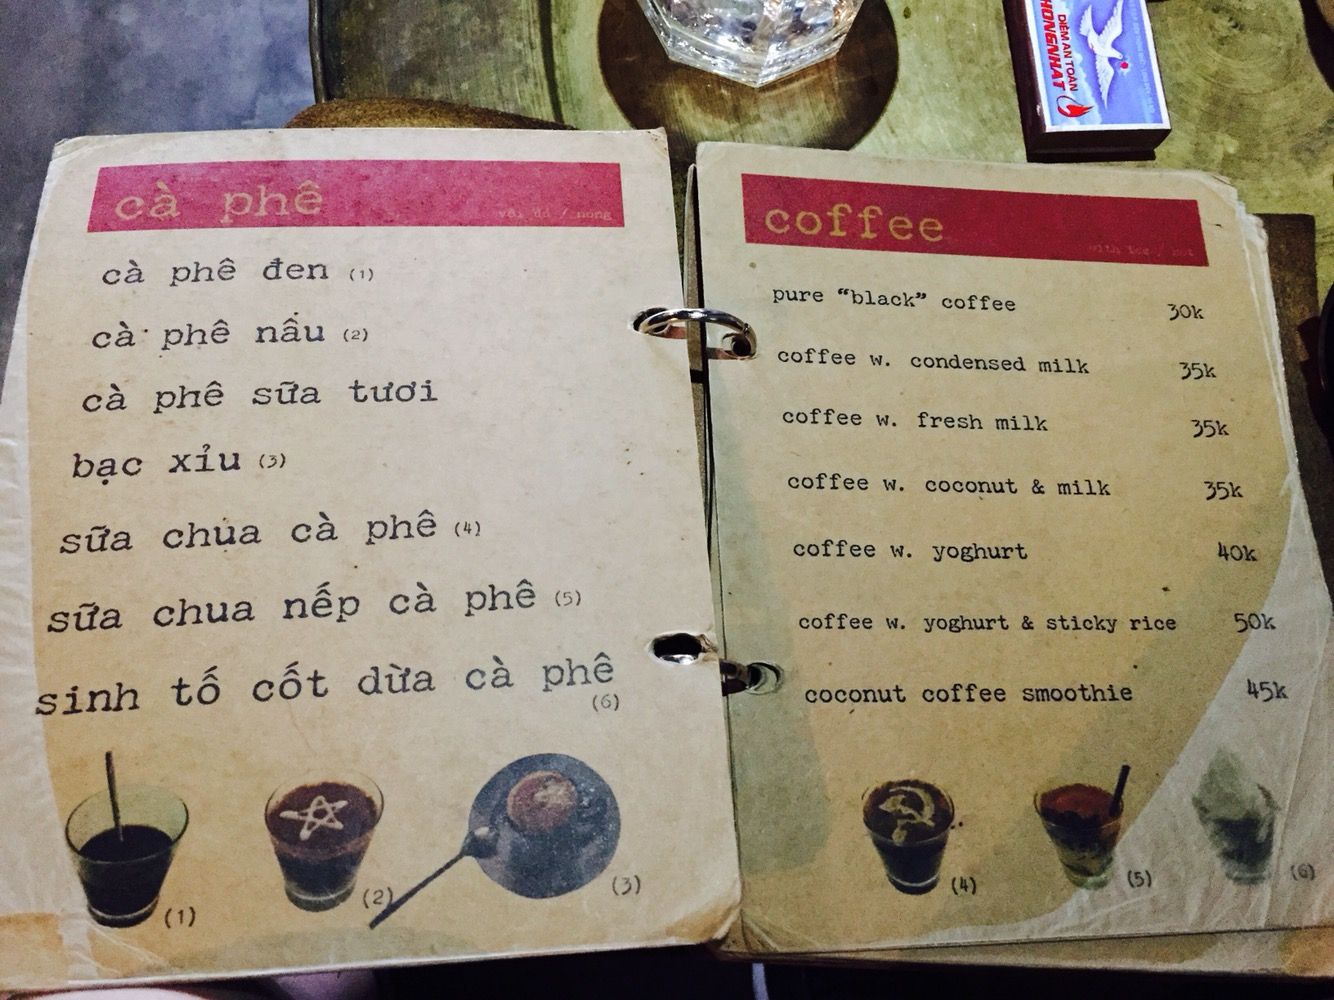 DIÊM AN TOÀN
THONGNHAT
cà phê
với đá / nóng
cà phê đen (1)
cà phê nấu (2)
cà phê sữa tươi
bạc xỉu (3)
sữa chua cà phê (4)
sữa chua nếp cà phê (5)
sinh tố cốt dừa cà phê
(6)
(1)
(2)
(3)
coffee
with ice / hot
pure “black” coffee 30k
coffee w. condensed milk 35k
coffee w. fresh milk 35k
coffee w. coconut & milk 35k
coffee w. yoghurt 40k
coffee w. yoghurt & sticky rice 50k
coconut coffee smoothie 45k
(4)
(5)
(6)